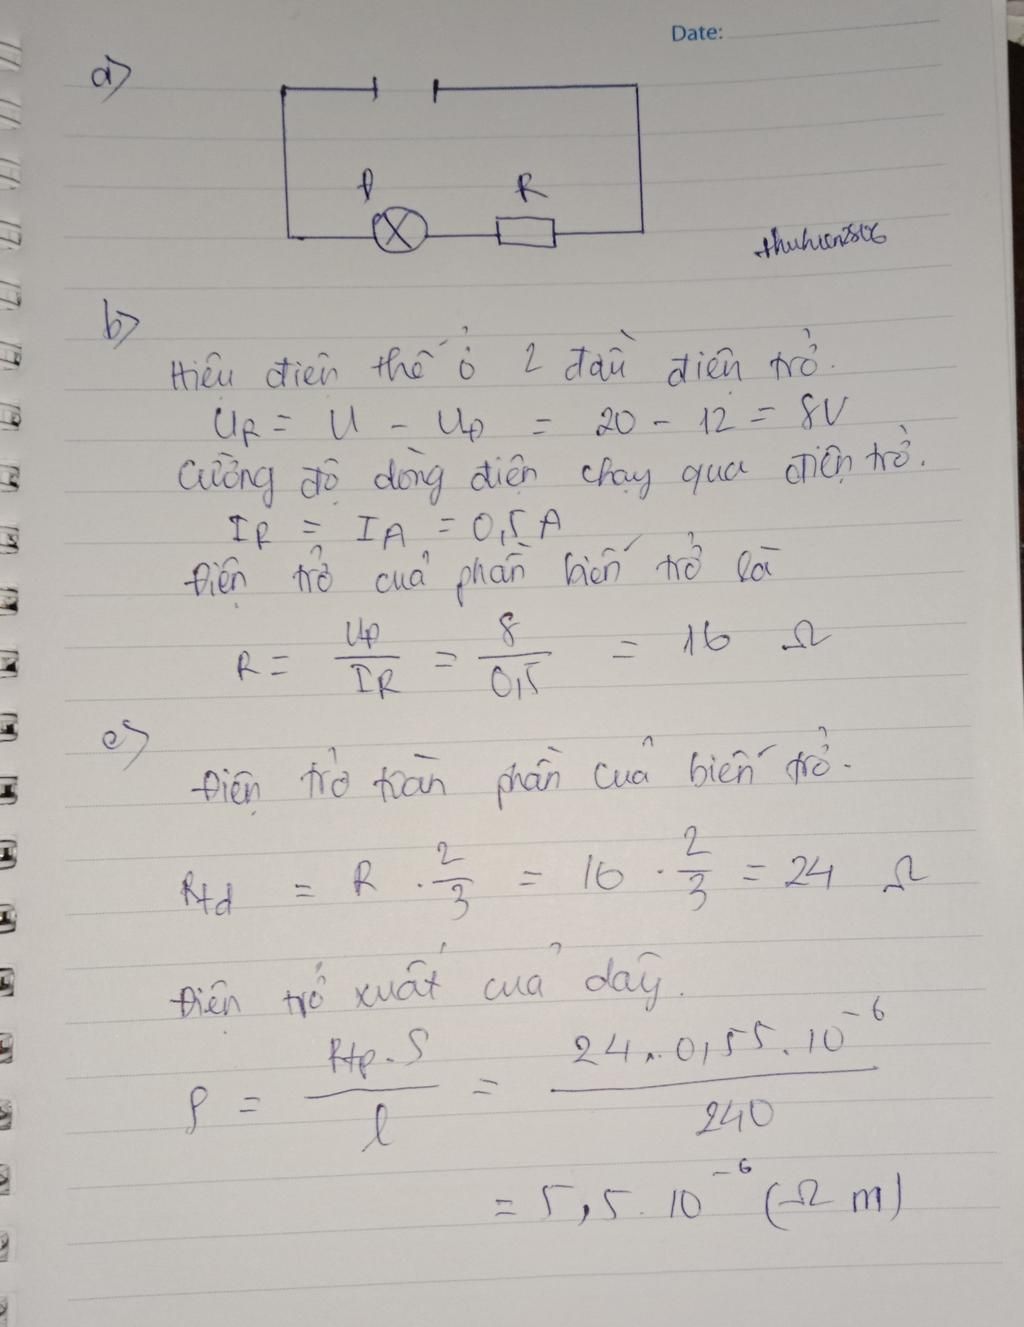 Date:
a)
Đ
R
thuhien2806
b)
Hiệu điện thế ở 2 đầu điện trở.
UR = U - UĐ = 20 - 12 = 8V
Cường độ dòng điện chạy qua điện trở.
IR = IA = 0,5 A
Điện trở của phần biến trở là
R = UĐ / IR = 8 / 0,5 = 16 Ω
c)
Điện trở toàn phần của biến trở.
Rtđ = R . 2/3 = 16 . 2/3 = 24 Ω
Điện trở xuất của dây.
ρ = Rtp . S / l = 24 . 0,55 . 10⁻⁶ / 240
= 5,5 . 10⁻⁶ (Ω m)